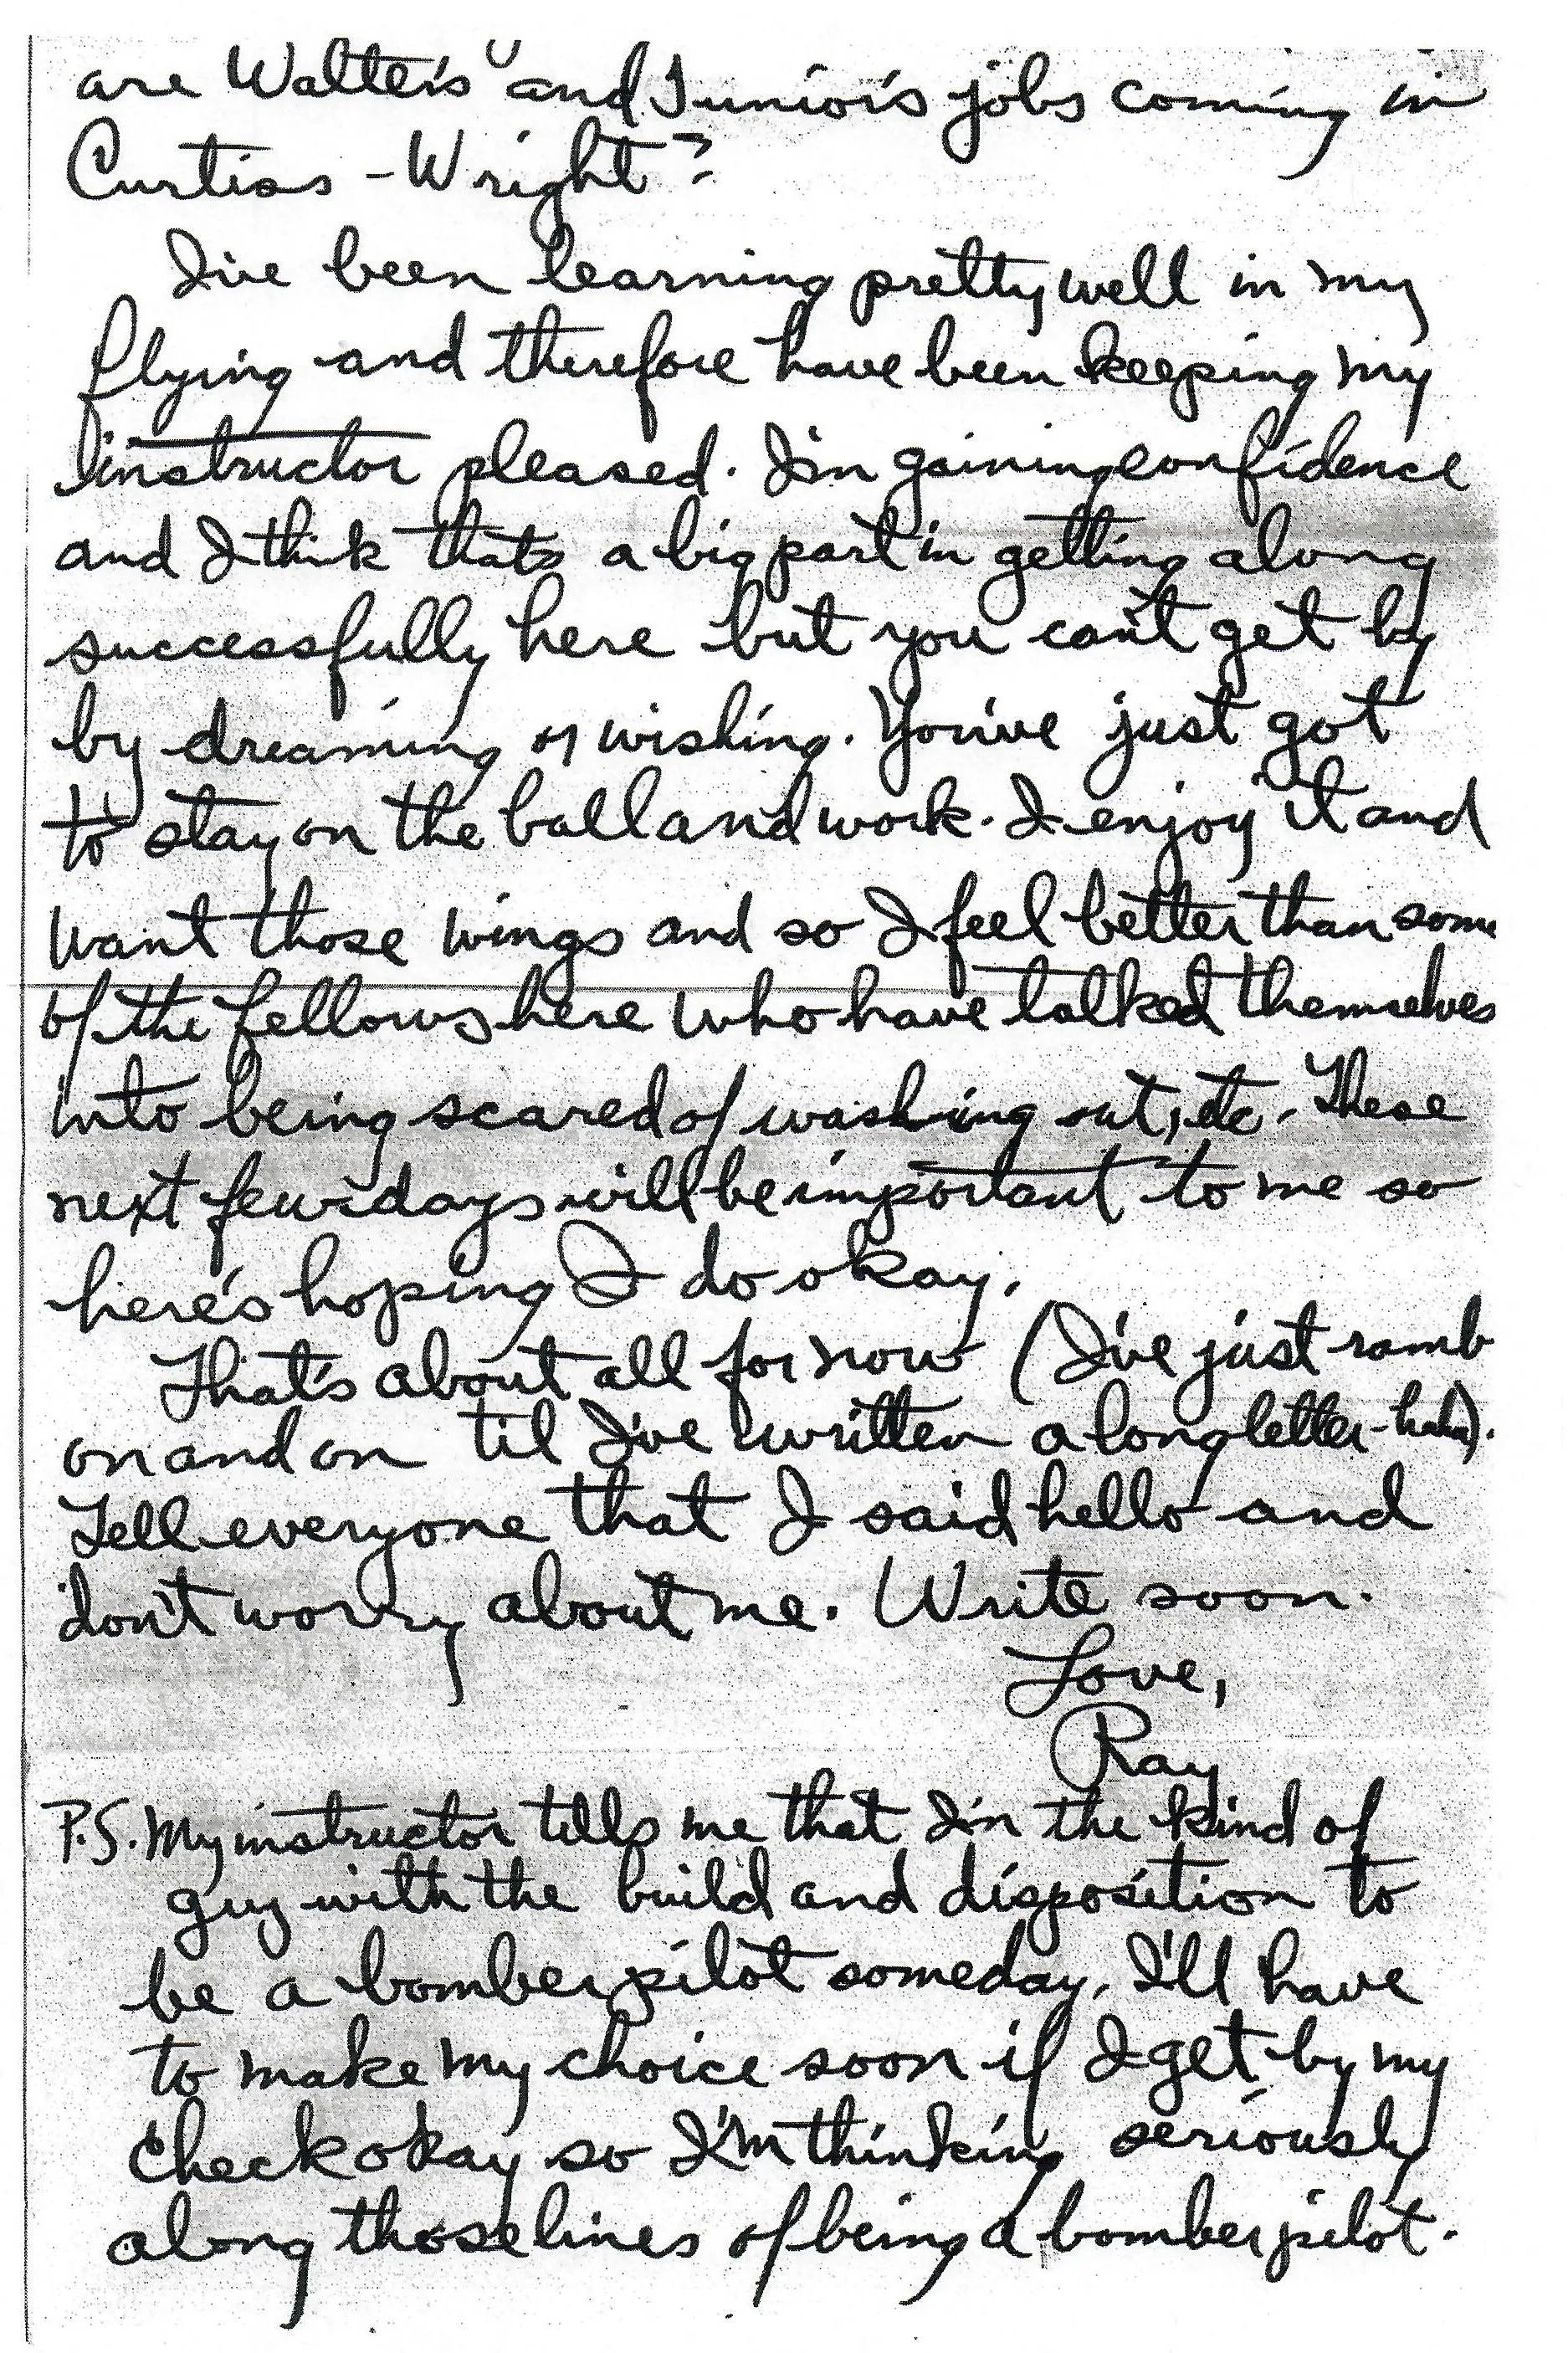 are Walter's and Junior's jobs coming in
Curtiss-Wright?
I've been learning pretty well in my
flying and therefore have been keeping my
instructor pleased. I'm gaining confidence
and I think thats a big part in getting along
successfully here but you can't get by
by dreaming or wishing. You've just got
to stay on the ball and work. I enjoy it and
want those wings and so I feel better than some
of the fellows here who have talked themselves
into being scared of washing out, etc. These
next few days will be important to me so
here's hoping I do okay.
That's about all for now (I've just ramb
on and on til I've written a long letter-haha).
Tell everyone that I said hello and
don't worry about me. Write soon.
Love,
Ray
P.S. My instructor tells me that I'm the kind of
guy with the build and disposition to
be a bomber pilot someday. I'll have
to make my choice soon if I get by my
check okay so I'm thinking seriously
along those lines of being a bomber pilot.